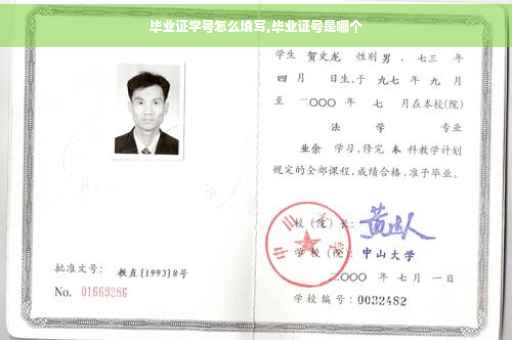 毕业证字号怎么填写,毕业证号是哪个
学生 贺文龙 性别 男 、七三 年
四 月 日生,于 九七 年 九 月
至 二〇〇〇 年 七 月在本校(院)
法 学 专业
业余 学习,修完 本 科教学计划
规定的全部课程,成绩合格,准予毕业。
校(院)长:
学校(院): 中山大学
二〇〇〇 年 七 月 一 日
学校编号: 0032482
批准文号: 教直[1993]8号
No. 01669286